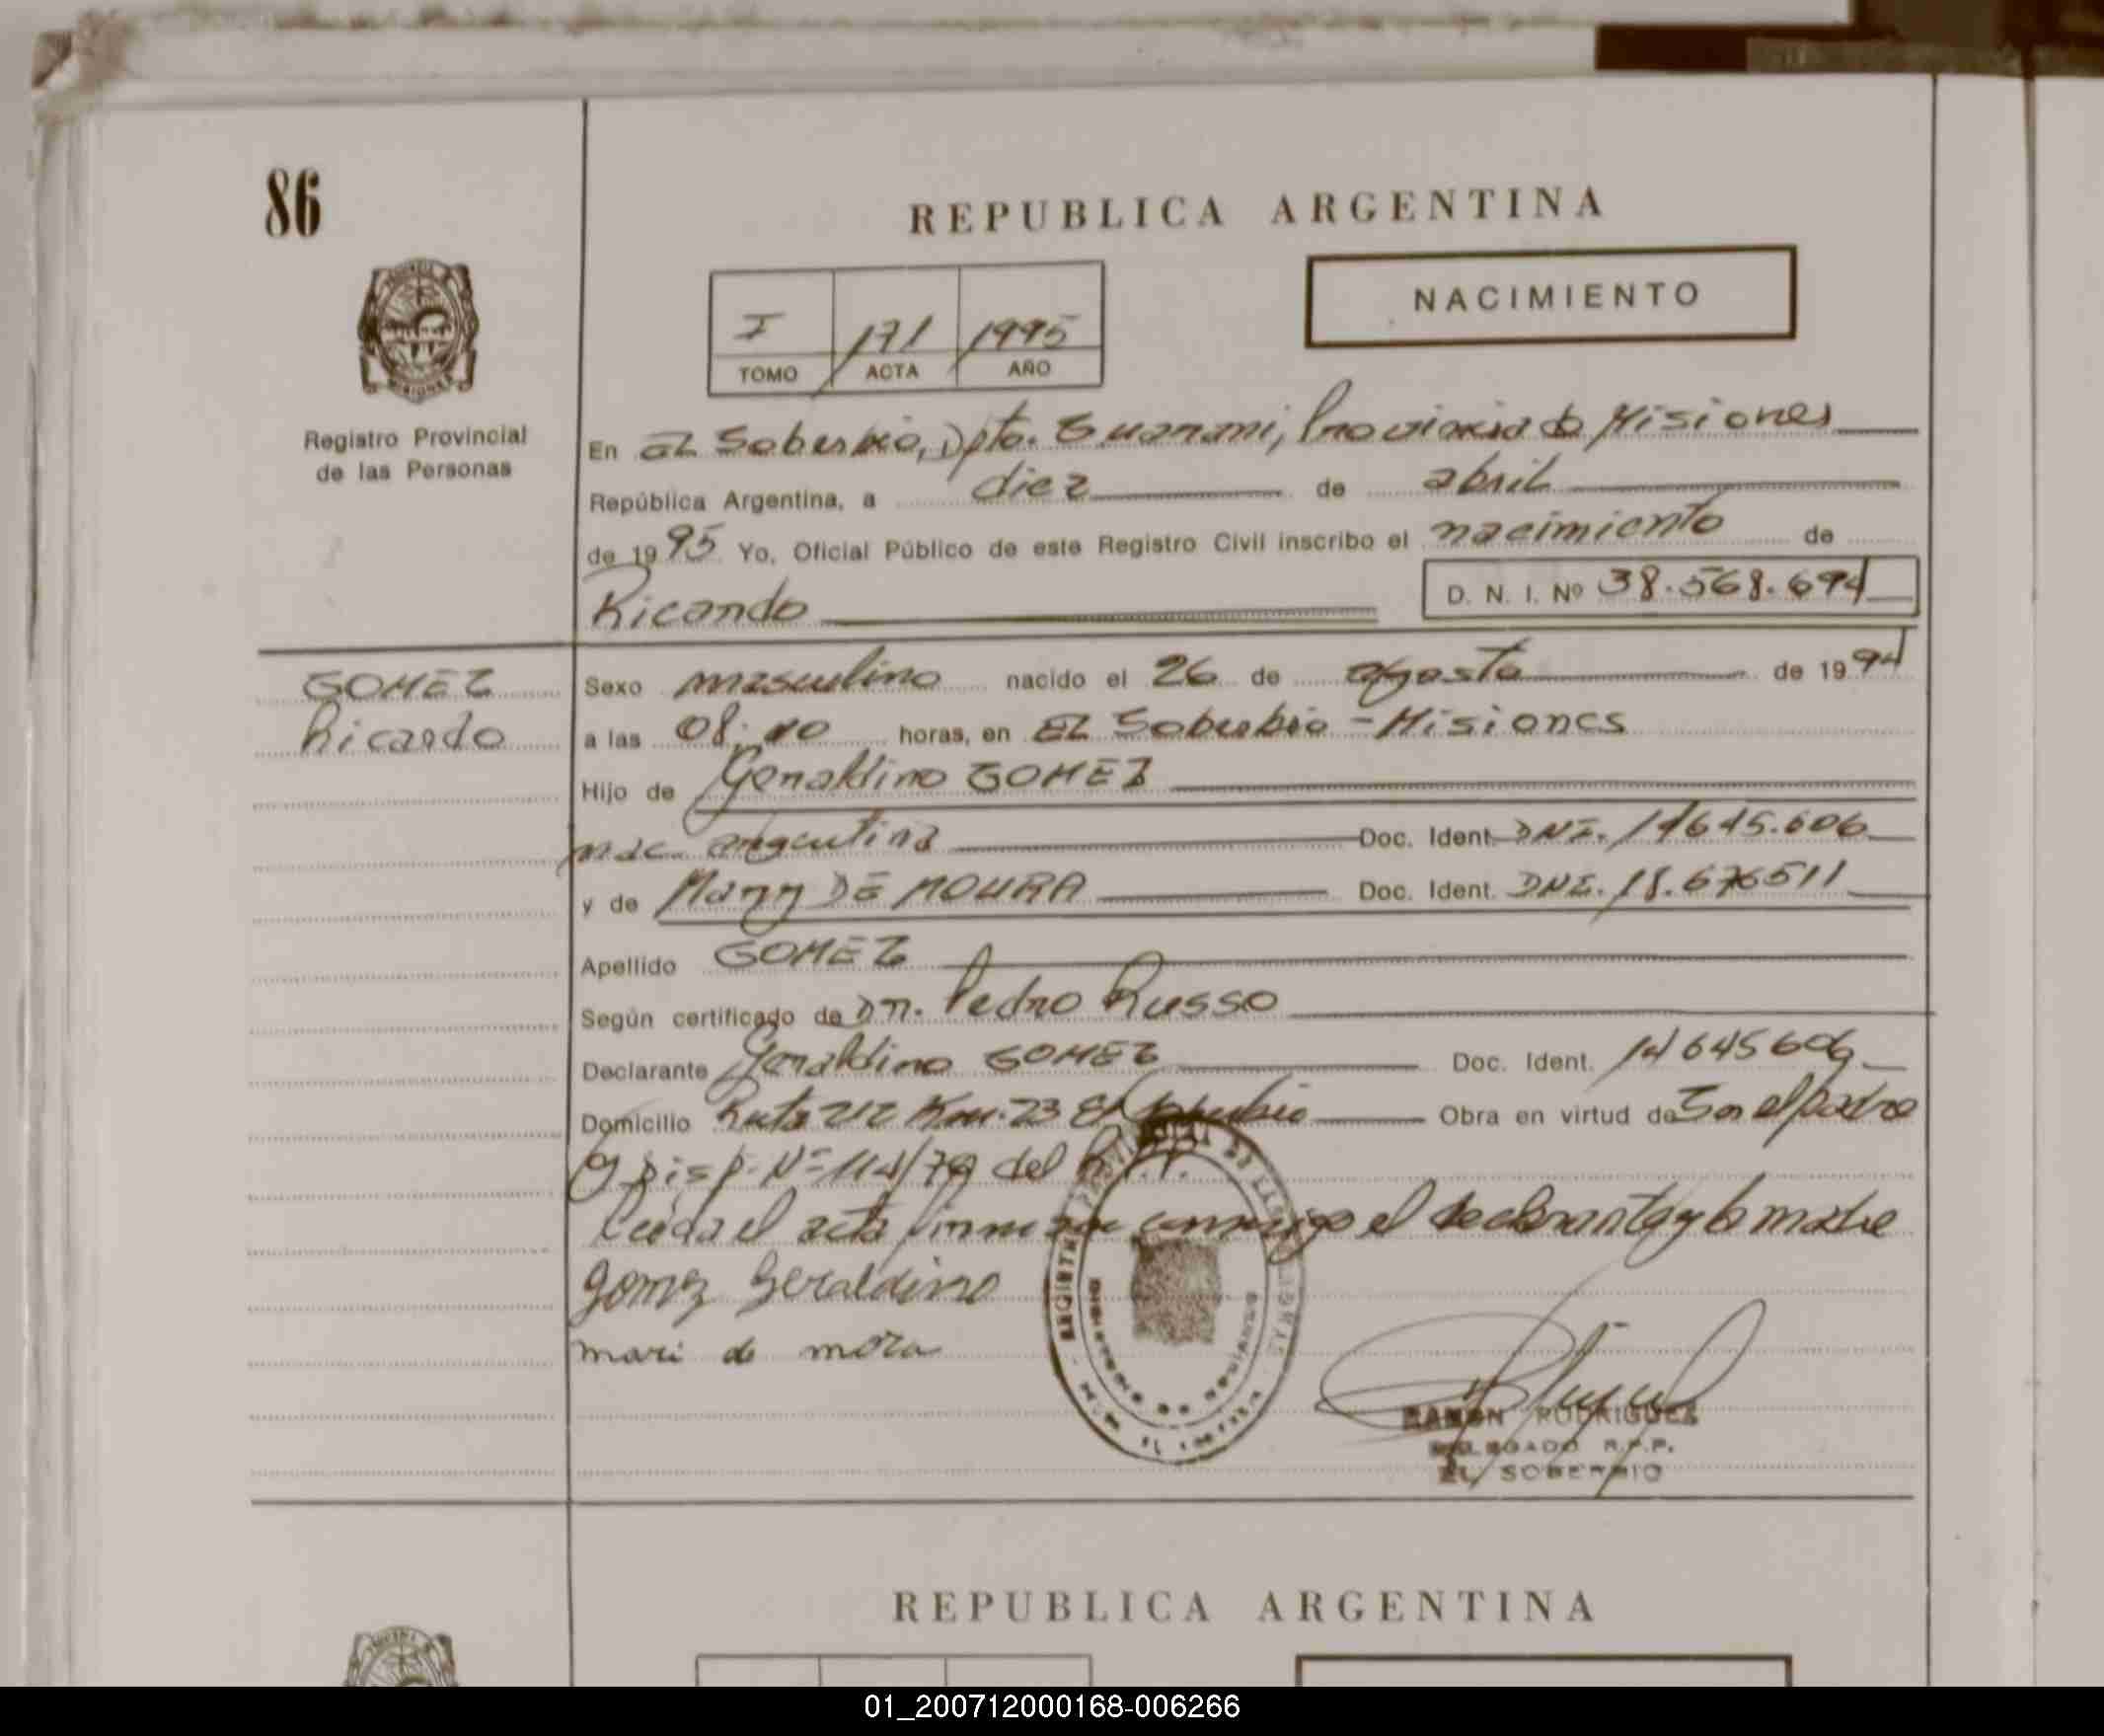 86
REPUBLICA ARGENTINA
NACIMIENTO
I 171 1995
TOMO ACTA AÑO
Registro Provincial
de las Personas
En El Soberbio, Dpto. Guarani, Provincia de Misiones
República Argentina, a diez de abril
de 1995 Yo, Oficial Público de este Registro Civil inscribo el nacimiento de
Ricardo D. N. I. Nº 38.568.694
GOMEZ
Ricardo
Sexo masculino nacido el 26 de agosto de 1994
a las 08: horas, en El Soberbio - Misiones
Hijo de Geraldino GOMEZ
nac. argentina Doc. Ident. DNI. 14645.606
y de Mary DE MOURA Doc. Ident. DNI. 18.676511
Apellido GOMEZ
Según certificado de Dr. Pedro Russo
Declarante Geraldino GOMEZ Doc. Ident. 14645606
Domicilio Ruta 212 Km. 23 El Soberbio Obra en virtud de Ser el padre
y Disp. Nº 114/79 del R.P.P.
Leída el acta firman conmigo el declarante y la madre
Gomez Geraldino
mari de mora
RAMON RODRIGUEZ
DELEGADO R.P.P.
EL SOBERBIO
REPUBLICA ARGENTINA
01_200712000168-006266